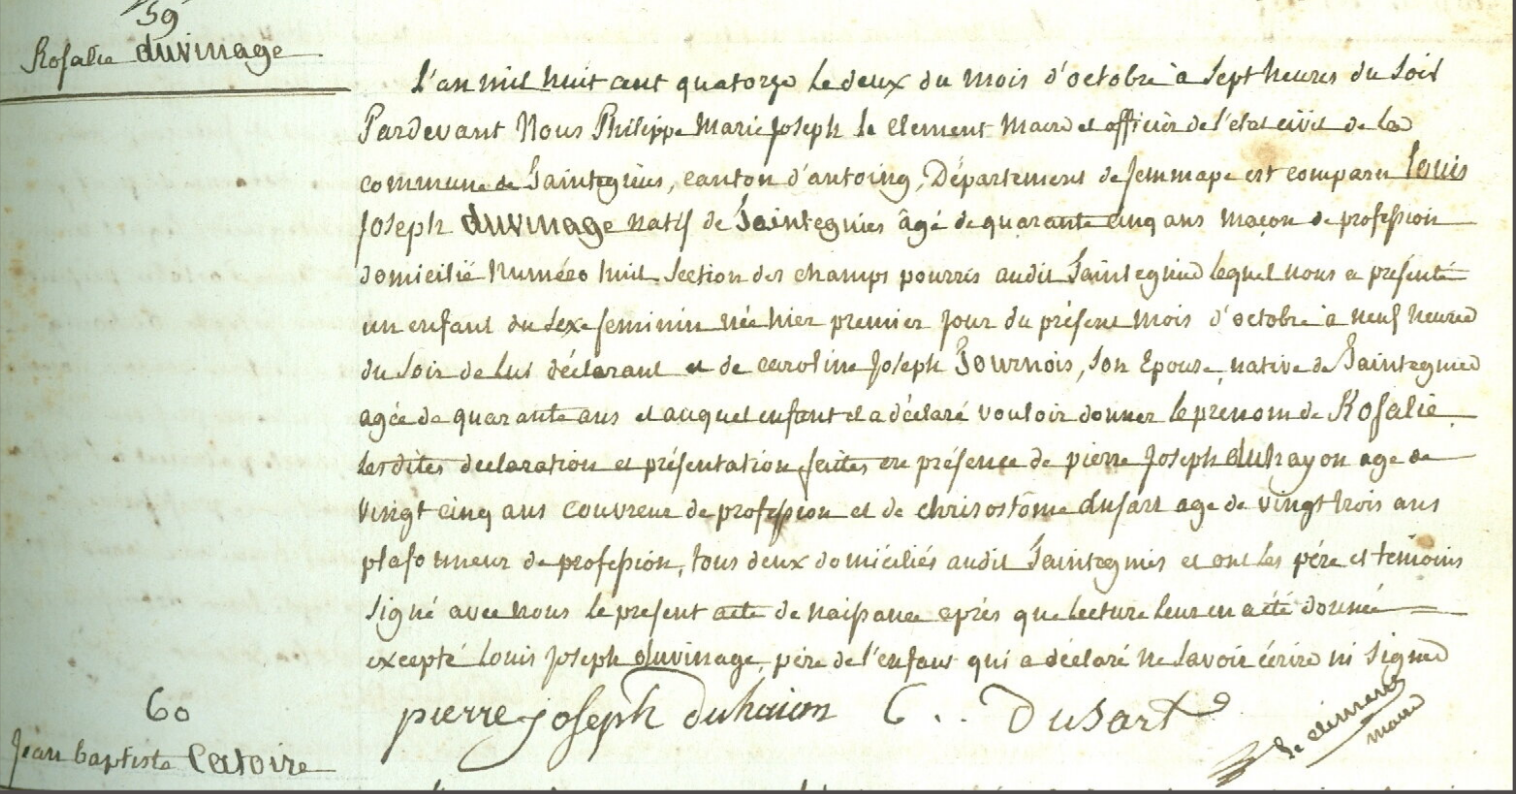 59
Rosalie duvinage
L'an mil huit cent quatorze le deux du mois d'octobre à sept heures du soir
Pardevant Nous Philippe Marie Joseph le Clement Maire et officier de l'etat civil de la
commune de Sainteguies, canton d'antoing, Département de Jemmape est comparu Louis
Joseph duvinage natif de Sainteguies âgé de quarante cinq ans maçon de profession
domicilié Numéro huit Section des champs pourris audit Sainteguies lequel nous a presenté
un enfant du sexe feminin née hier premier jour du présent mois d'octobre à neuf heures
du soir de lui déclarant et de caroline Joseph Journois, son Epouse, native de Sainteguies
agée de quarante ans et auquel enfant il a déclaré vouloir donner le prenom de Rosalie.
lesdites declaration et présentation faites en présence de pierre Joseph duhayon age de
vingt cinq ans couvreur de profession et de chrisostôme dusart age de vingt trois ans
plafonneur de profession, tous deux domiciliés audit Sainteguies et ont les pére et temoins
signé avec nous le present acte de naissance après que lecture leur en a été donnée
excepté Louis Joseph duvinage, pére de l'enfant qui a déclaré ne savoir écrire ni signer
pierre joseph duhaion C . . Dusart
le clement
maire
60
Jean baptiste Catoire